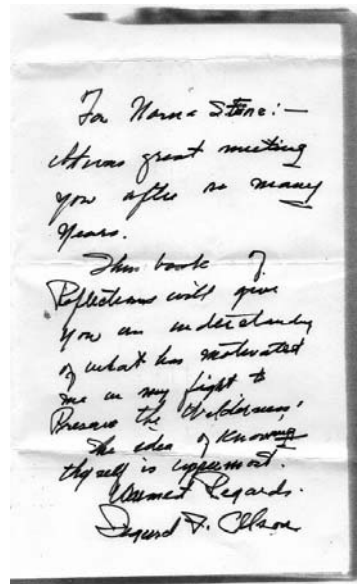 For Norma Stone:—
It was great meeting
you after so many
years.
This book of
Reflections will give
you an understanding
of what has motivated
me in my fight to
Preserve the Wilderness,
The idea of Knowing
thyself is uppermost.
Warmest Regards.
Sigurd F. Olson